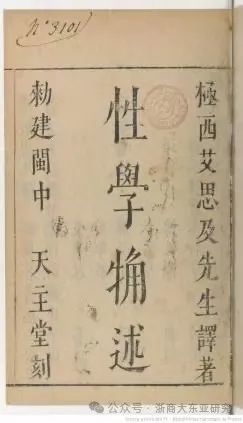 nº 3101
極西艾思及先生譯著
性學觕述
勅建閩中 天主堂刻
公众号 · 浙商大东亚研究